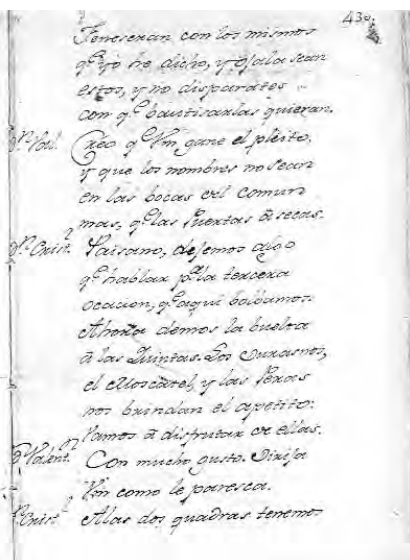 430.
Feneseran con los mismos
q.e yo he dicho, y Ojala sean
estos, y no disparates
con q.e bautisarlas quieran.
Creo q.e Vm gane el pleito,
y que los nombres no sean
en las bocas del comun
mas, q.e las Puertas á secas.
D.n Crist.l Paisano, dejemos algo
q.e hablar p.a la tercera
ocacion, q.e aqui bolbamos.
Ahora demos la buelta
á las Quintas. Los Durasnos,
el Moscatel, y las Peras
nos brindan el apetito.
Vamos á disfrutar de ellas.
D.n Valent.n Con mucho gusto. Dirija
Vm como le paresca.
D.n Crist.l A las dos quadras tenemos